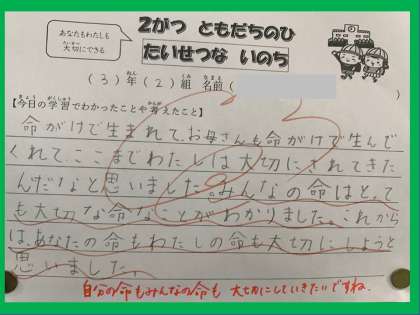 あなたもわたしも
大切にできる
2がつ ともだちのひ
たいせつな いのち
(3)年(2)組 名前( )
【今日の学習でわかったことや考えたこと】
命がけで生まれて、お母さんも命がけで生んで
くれて、ここまでわたしは大切にされてきた
んだなと思いました。みんなの命はとって
も大切な命なことがわかりました。これから
は、あなたの命もわたしの命も大切にしようと
思いました。
自分の命もみんなの命も 大切にしていきたいですね。